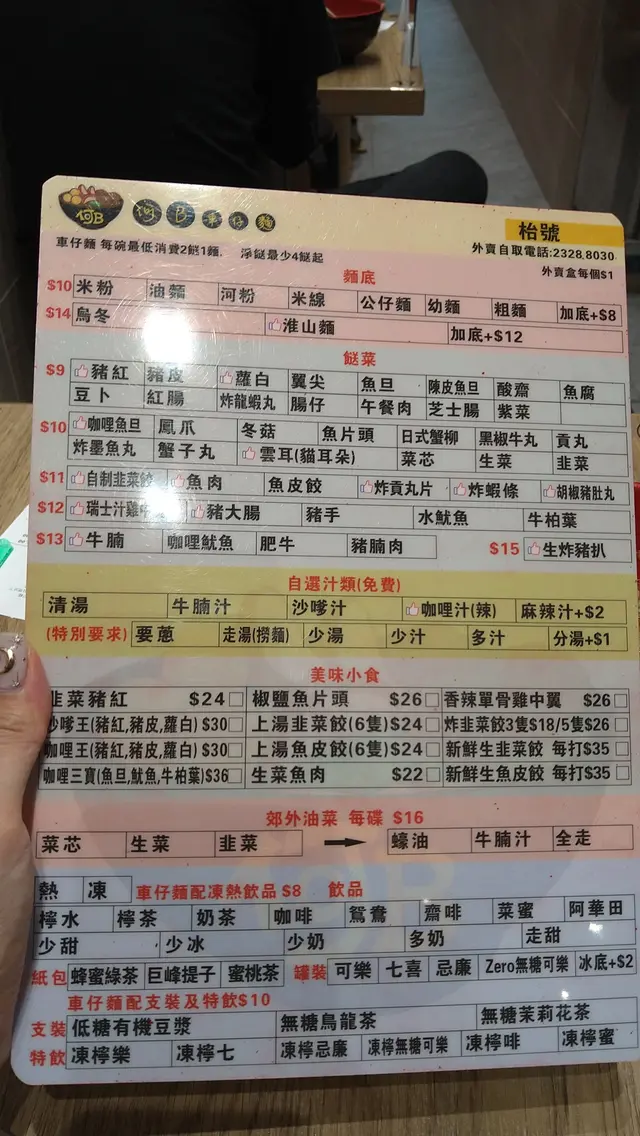 何B 何B車仔麵
枱號
車仔麵 每碗最低消費2餸1麵. 淨餸最少4餸起
外賣自取電話:2328,8030
外賣盒每個$1
麵底
$10 米粉 油麵 河粉 米線 公仔麵 幼麵 粗麵 加底+$8
$14 烏冬 淮山麵 加底+$12
餸菜
$9 豬紅 豬皮 蘿白 翼尖 魚旦 陳皮魚旦 酸齋 魚腐
豆卜 紅腸 炸龍蝦丸 腸仔 午餐肉 芝士腸 紫菜
$10 咖喱魚旦 鳳爪 冬菇 魚片頭 日式蟹柳 黑椒牛丸 貢丸
炸墨魚丸 蟹子丸 雲耳(貓耳朵) 菜芯 生菜 韭菜
$11 自制韭菜餃 魚肉 魚皮餃 炸貢丸片 炸蝦條 胡椒豬肚丸
$12 瑞士汁雞中 豬大腸 豬手 水魷魚 牛柏葉
$13 牛腩 咖喱魷魚 肥牛 豬腩肉 $15 生炸豬扒
自選汁類(免費)
清湯 牛腩汁 沙嗲汁 咖喱汁(辣) 麻辣汁+$2
(特別要求) 要蔥 走湯(撈麵) 少湯 少汁 多汁 分湯+$1
美味小食
韭菜豬紅 $24 椒鹽魚片頭 $26 香辣單骨雞中翼 $26
沙嗲王(豬紅,豬皮,蘿白) $30 上湯韭菜餃(6隻)$24 炸韭菜餃3隻$18/5隻$26
咖喱王(豬紅,豬皮,蘿白) $30 上湯魚皮餃(6隻)$24 新鮮生韭菜餃 每打$35
咖喱三寶(魚旦,魷魚,牛柏葉)$36 生菜魚肉 $22 新鮮生魚皮餃 每打$35
郊外油菜 每碟 $16
菜芯 生菜 韭菜 蠔油 牛腩汁 全走
熱 凍 車仔麵配凍熱飲品 $8 飲品
檸水 檸茶 奶茶 咖啡 鴛鴦 齋啡 菜蜜 阿華田
少甜 少冰 少奶 多奶 走甜
紙包 蜂蜜綠茶 巨峰提子 蜜桃茶 罐裝 可樂 七喜 忌廉 Zero無糖可樂 冰底+$2
車仔麵配支裝及特飲$10
支裝 低糖有機豆漿 無糖烏龍茶 無糖茉莉花茶
特飲 凍檸樂 凍檸七 凍檸忌廉 凍檸無糖可樂 凍檸啡 凍檸蜜